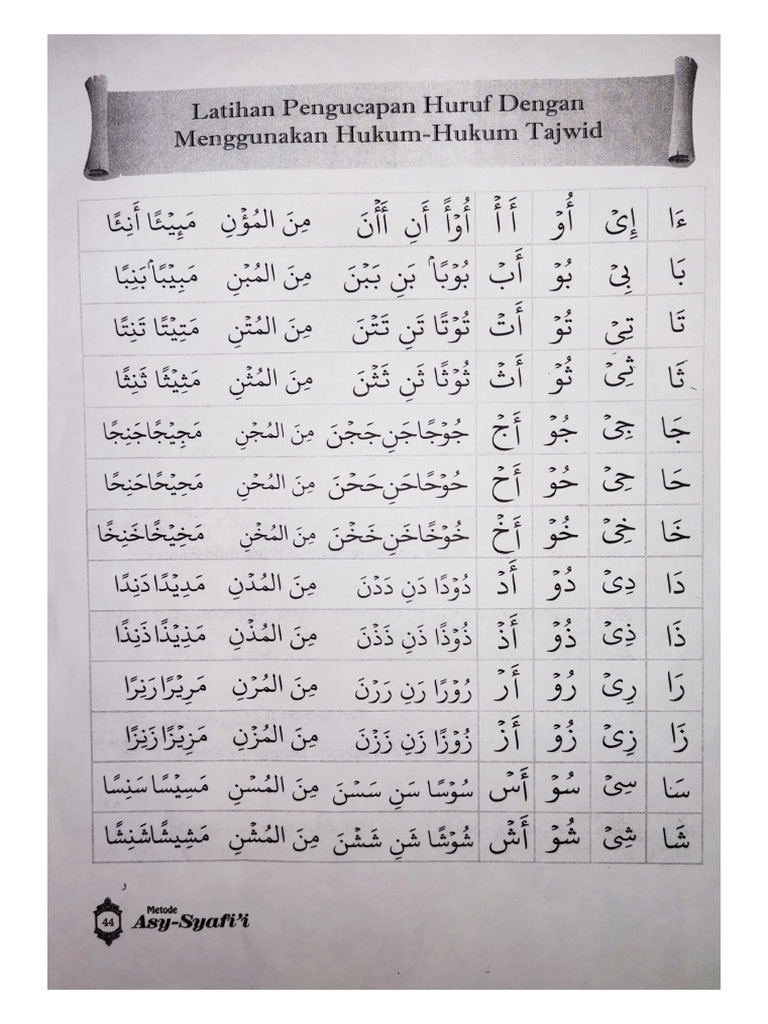 Latihan Pengucapan Huruf Dengan
Menggunakan Hukum-Hukum Tajwid
ءَا إِىْ أُوْ أَ أْ أُوْأً أَنِ أَأْنَ مِنَ الْمُؤْنِ مَئِيْئًا أَنِئًا
بَا بِىْ بُوْ أَبْ بُوْبًا بَنِ بَبْنَ مِنَ الْمُبْنِ مَبِيْبًا بَنِبًا
تَا تِىْ تُوْ أَتْ تُوْتًا تَنِ تَتْنَ مِنَ الْمُتْنِ مَتِيْتًا تَنِتًا
ثَا ثِىْ ثُوْ أَثْ ثُوْثًا ثَنِ ثَثْنَ مِنَ الْمُثْنِ مَثِيْثًا ثَنِثًا
جَا جِىْ جُوْ أَجْ جُوْجًا جَنِ جَجْنَ مِنَ الْمُجْنِ مَجِيْجًا جَنِجًا
حَا حِىْ حُوْ أَحْ حُوْحًا حَنِ حَحْنَ مِنَ الْمُحْنِ مَحِيْحًا حَنِحًا
خَا خِىْ خُوْ أَخْ خُوْخًا خَنِ خَخْنَ مِنَ الْمُخْنِ مَخِيْخًا خَنِخًا
دَا دِىْ دُوْ أَدْ دُوْدًا دَنِ دَدْنَ مِنَ الْمُدْنِ مَدِيْدًا دَنِدًا
ذَا ذِىْ ذُوْ أَذْ ذُوْذًا ذَنِ ذَذْنَ مِنَ الْمُذْنِ مَذِيْذًا ذَنِذًا
رَا رِىْ رُوْ أَرْ رُوْرًا رَنِ رَرْنَ مِنَ الْمُرْنِ مَرِيْرًا رَنِرًا
زَا زِىْ زُوْ أَزْ زُوْزًا زَنِ زَزْنَ مِنَ الْمُزْنِ مَزِيْزًا زَنِزًا
سَا سِىْ سُوْ أَسْ سُوْسًا سَنِ سَسْنَ مِنَ الْمُسْنِ مَسِيْسًا سَنِسًا
شَا شِىْ شُوْ أَشْ شُوْشًا شَنِ شَشْنَ مِنَ الْمُشْنِ مَشِيْشًا شَنِشًا
44 Metode
Asy-Syafi'i